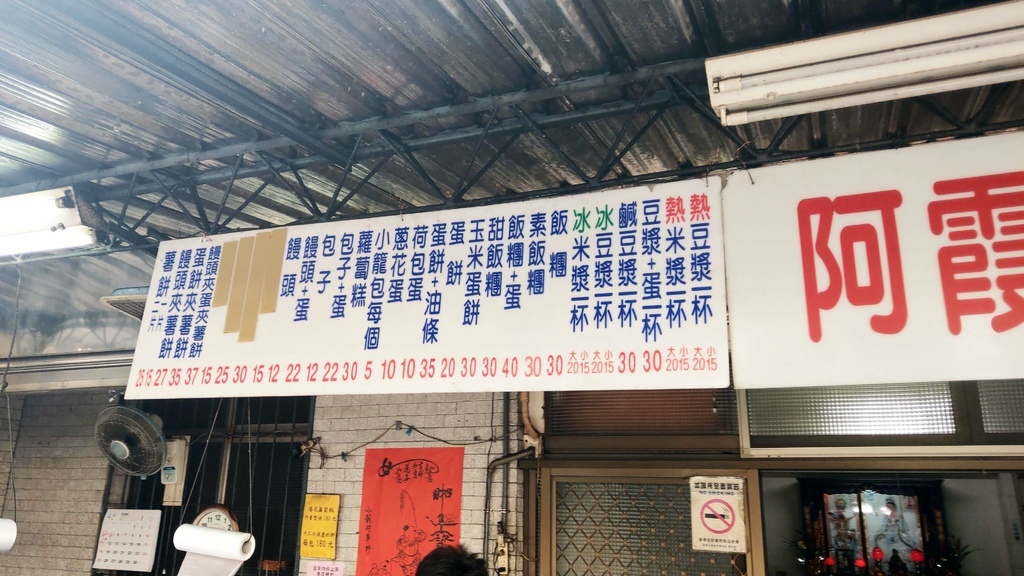 阿霞
熱豆漿一杯 大小 2015
熱米漿一杯 大小 2015
豆漿+蛋一杯 30
鹹豆漿一杯 30
冰豆漿一杯 大小 2015
冰米漿一杯 大小 2015
飯糰 30
素飯糰 30
飯糰+蛋 40
甜飯糰 30
玉米蛋餅 30
蛋餅 20
蛋餅+油條 35
荷包蛋 10
蔥花蛋 10
小籠包每個 5
蘿蔔糕 30
包子+蛋 22
包子 12
饅頭+蛋 22
饅頭 12
15
30
25
15
饅頭夾蛋薯餅 37
蛋餅夾薯餅 35
饅頭夾薯餅 27
薯餅二片一片 25 15
NO SMOKING
每包180元